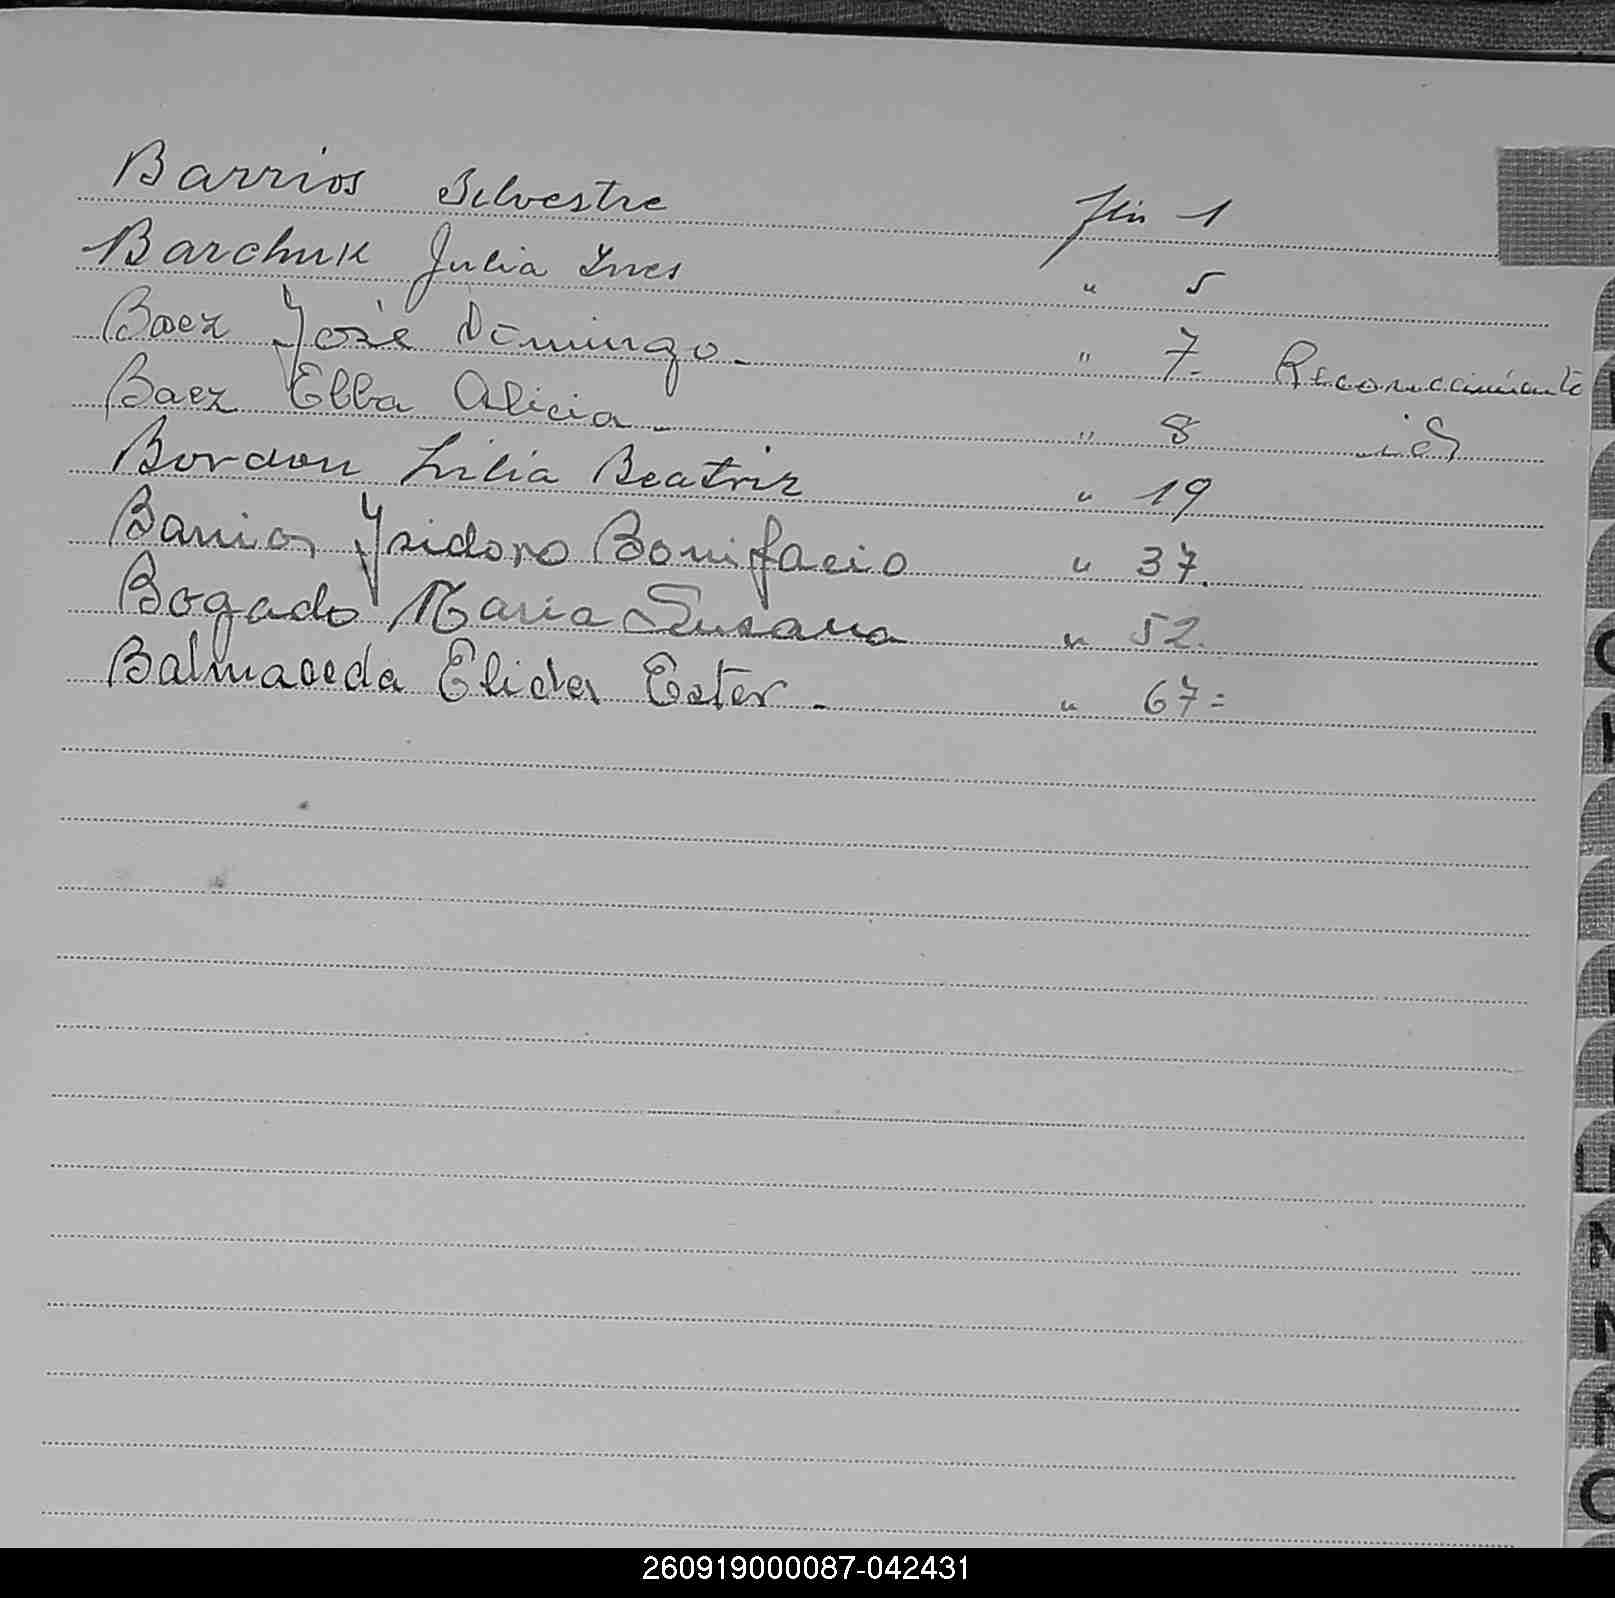 Barrios Silvestre fin 1
Barchuk Julia Ines " 5
Baez José Domingo - " 7- Reconocimiento
Baez Elba Alicia - " 8 id
Bordon Lilia Beatriz " 19
Barrios Ysidoro Bonifacio " 37.
Bogado Maria Susana " 52.
Balmaceda Elida Ester - " 67=
C
M
N
O
260919000087-042431